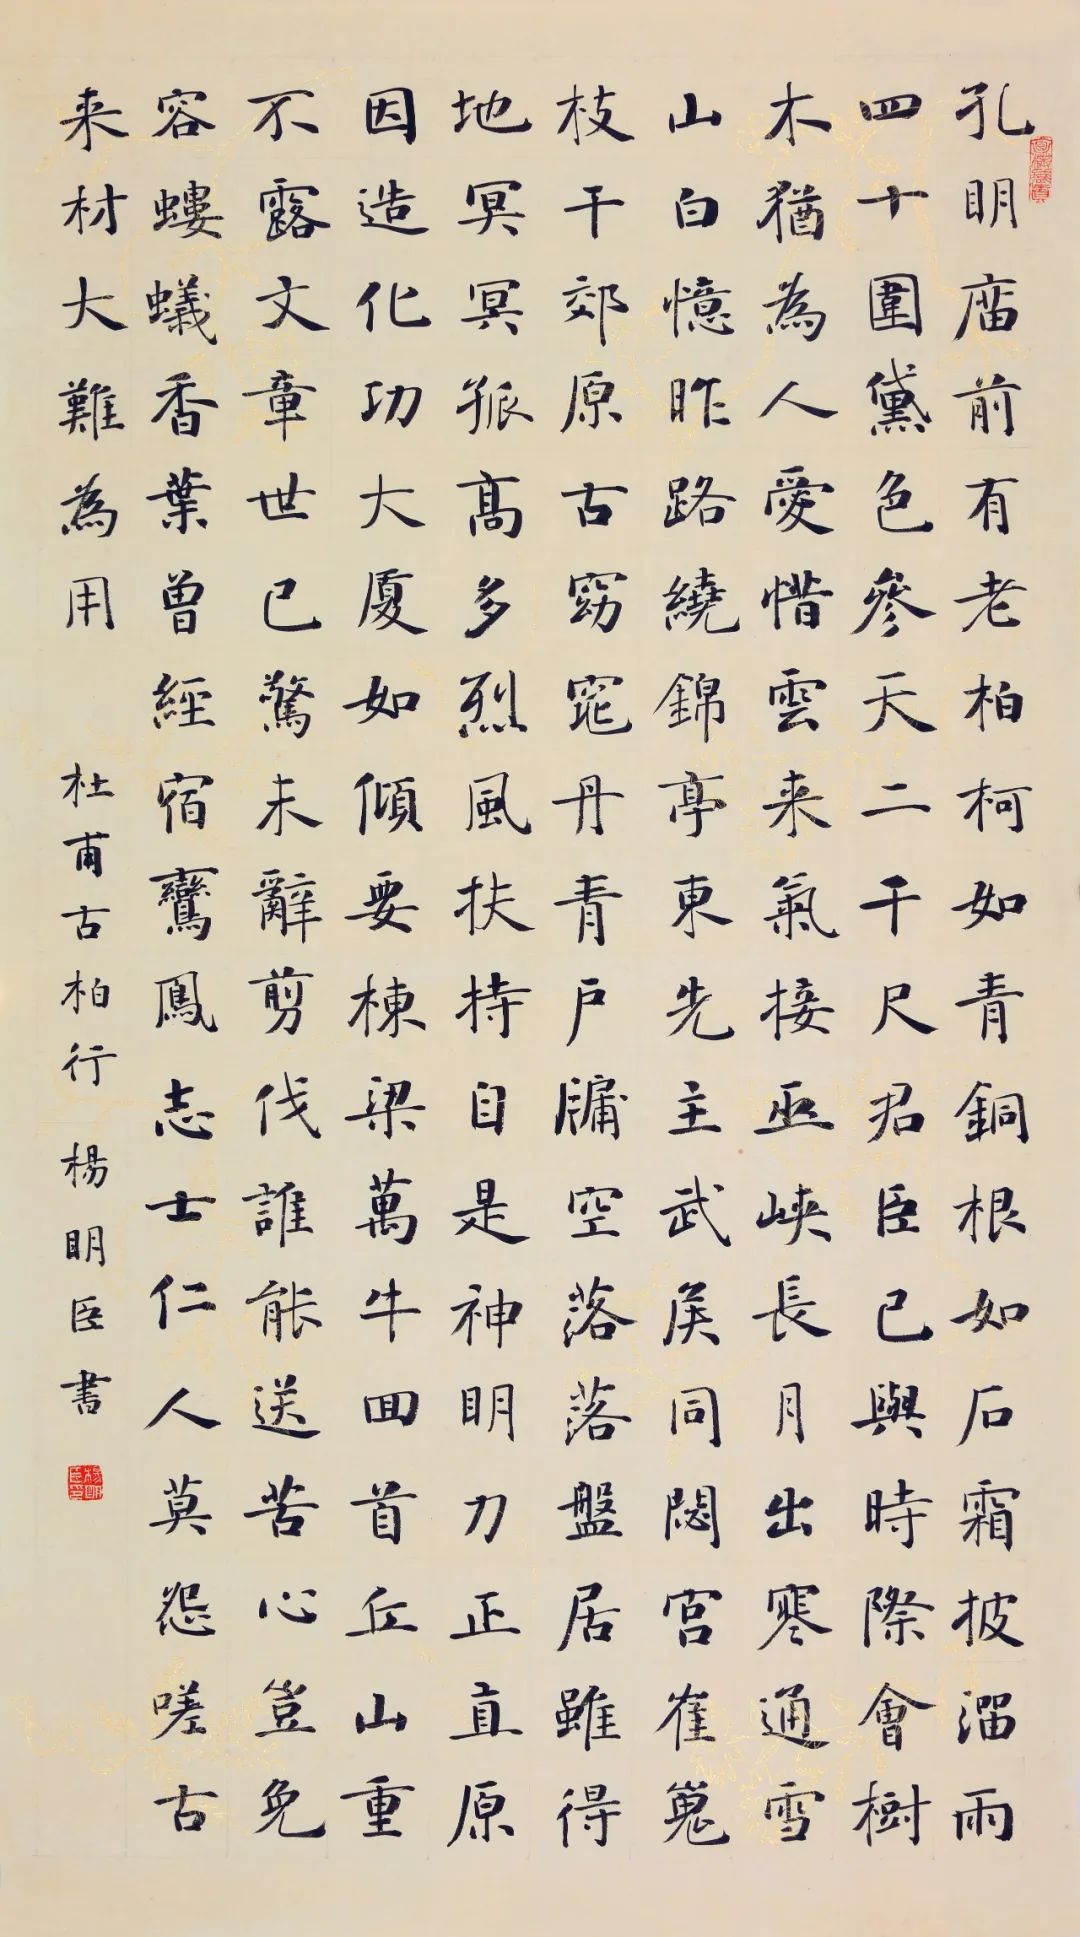 孔明庿前有老柏柯如青銅根如石霜披溜雨
四十圍黛色參天二千尺君臣已與時際會樹
木猶為人愛惜雲来氣接巫峽長月出寒通雪
山白憶昨路繞錦亭東先主武侯同閟宮崔嵬
枝干郊原古窈窕丹青戶牖空落落盤居雖得
地冥冥孤高多烈風扶持自是神明力正直原
因造化功大廈如傾要棟梁萬牛回首丘山重
不露文章世已驚未辭剪伐誰能送苦心豈免
容螻蟻香葉曾經宿鸞鳳志士仁人莫怨嗟古
来材大難為用
杜甫古柏行 楊明臣書
楊明臣印